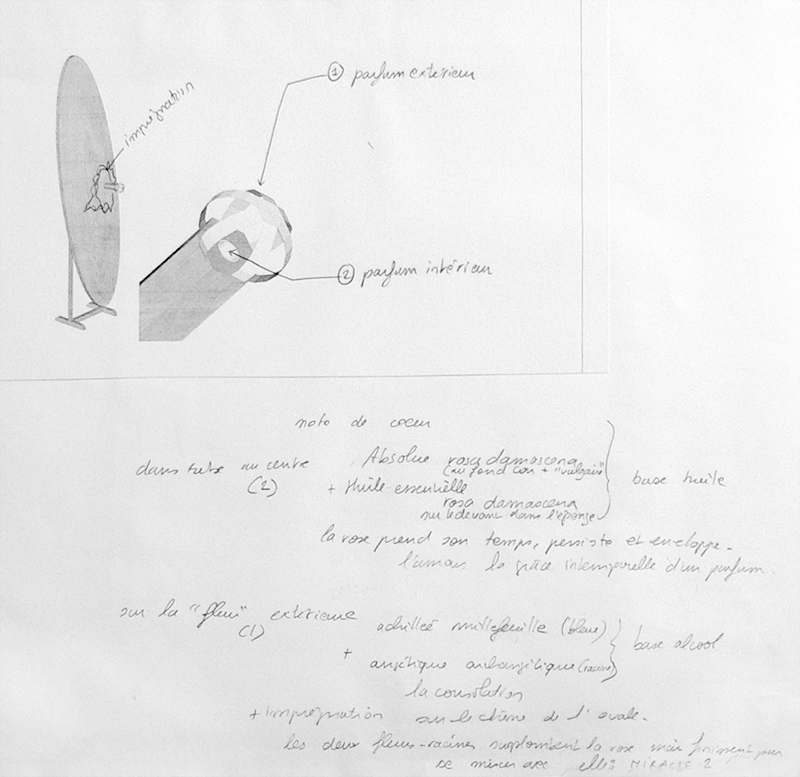 ① parfum extérieur
imprégnation
② parfum intérieur
note de coeur
dans tube au centre
(2)
Absolue rosa damascena
(au fond car + "vulgaire"
+ Huile essentielle
rosa damascena
sur le devant dans l'éponge
base huile
la rose prend son temps, persiste et enveloppe.
l'amour la grâce intemporelle d'un parfum.
sur la "fleur" extérieure
(1)
achillée millefeuille (bleue)
+
angélique archangélique (racine)
base alcool
la consolation
+ imprégnation sur le chêne de l'ovale.
les deux fleurs-racines surplombent la rose mais finissent par
se marier avec elle